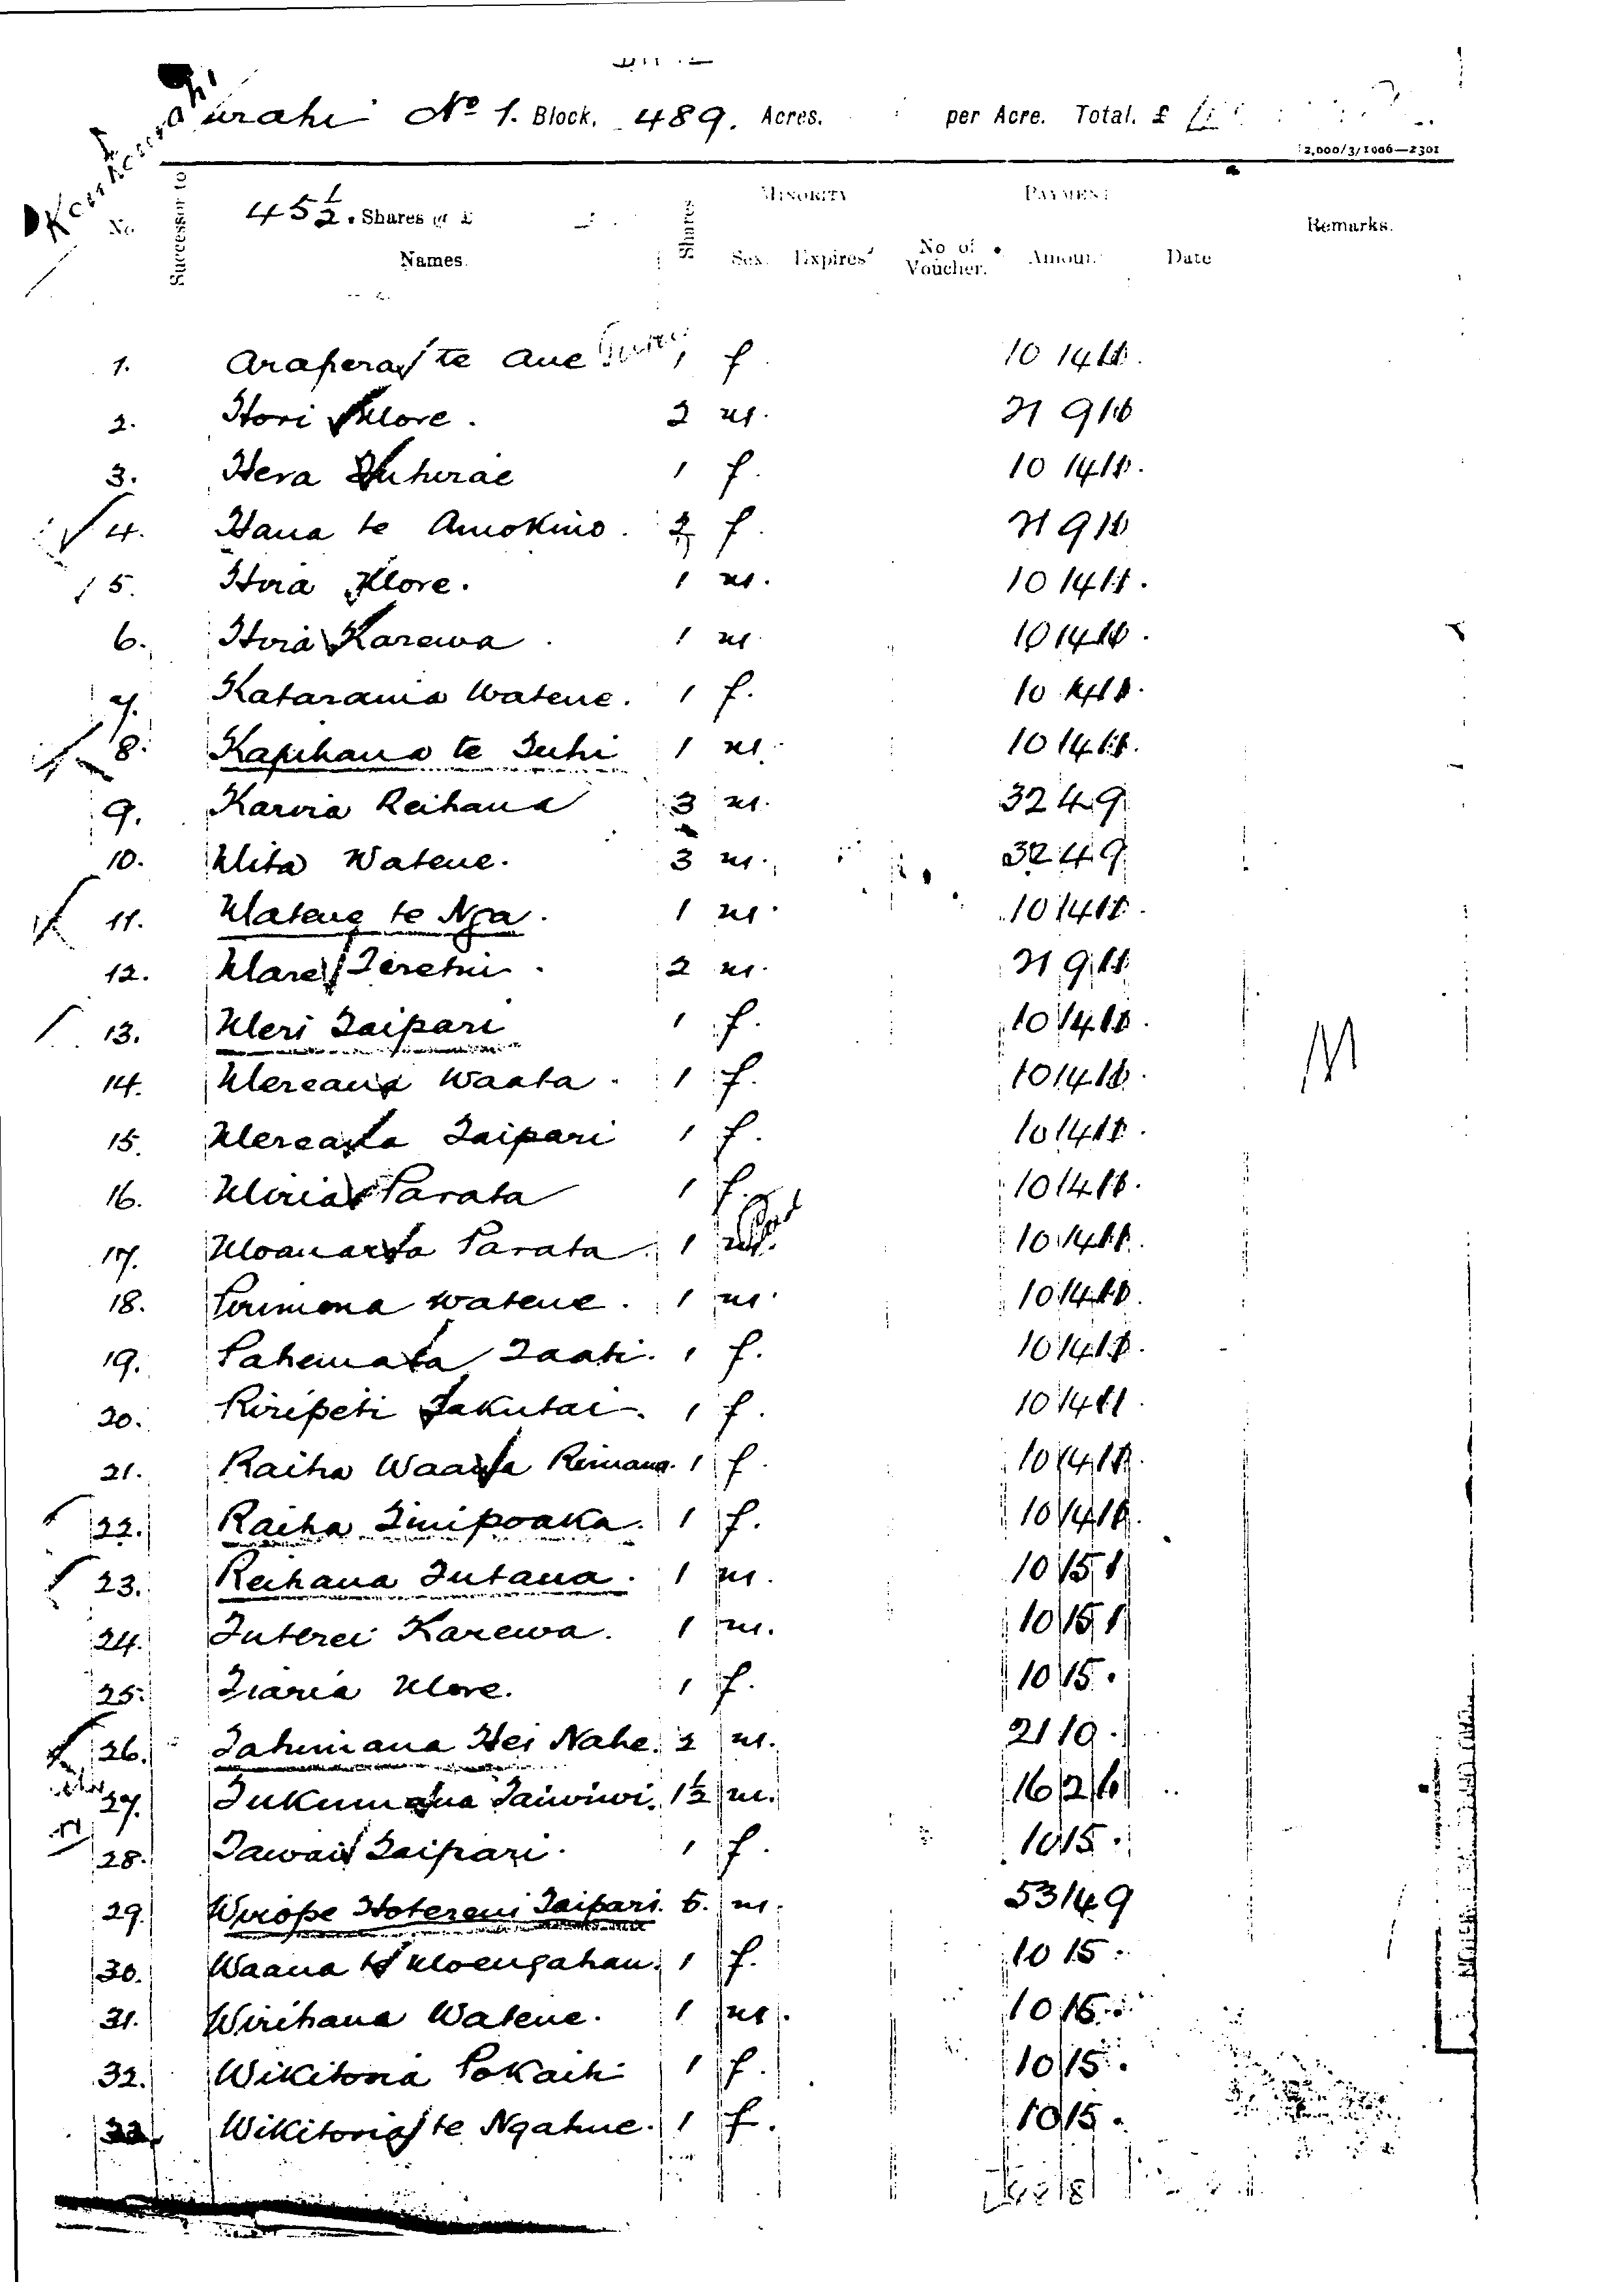 Kaurahi No 1. Block. 489. Acres. per Acre. Total. £
12,000/3/1906—2301
No. Successor to 45½. Shares @ £ Names. Shares MINORITY Sex. Expires No of Voucher. PAYMENT Amount Date Remarks.
1. Arapera te Aue 1 f. 10 14 11
2. Hori More. 2 m. 21 9 10
3. Hera Puhirae 1 f. 10 14 11
4. Hana te Amokino. 2 f. 21 9 10
5. Hira More. 1 m. 10 14 11
6. Hira Karewa 1 m 10 14 11
7. Katarama Watene. 1 f. 10 14 11
8. Kapihana te Tuhi 1 m. 10 14 11
9. Karira Reihana 3 m. 32 4 9
10. Mita Watene. 3 m. 32 4 9
11. Matene te Nga. 1 m. 10 14 11
12. Mare Teretui. 2 m. 21 9 11
13. Meri Taipari 1 f. 10 14 11
14. Mereana Waata. 1 f. 10 14 11
15. Mereata Taipari 1 f. 10 14 11
16. Miria Parata 1 f. 10 14 11
17. Moanaroa Parata. 1 10 14 11
18. Pirimona Watene. 1 m. 10 14 11
19. Pahemata Taati. 1 f. 10 14 11
20. Riripeti Takutai. 1 f. 10 14 11
21. Raiha Waata Rimana. 1 f. 10 14 11
22. Raiha Tinipoaka. 1 f. 10 14 11
23. Reihana Tutana. 1 m. 10 15 1
24. Tuterei Karewa. 1 m. 10 15 1
25. Tiaria More. 1 f. 10 15 .
26. Tahimana Hei Nahe. 2 m. 21 10 .
27. Tukumana Taiwiwi. 1½ m. 16 2 6
28. Tawai Taipari. 1 f. 10 15 .
29. Wirope Hotereni Taipari. 5. m. 53 14 9
30. Waana te Moengahau. 1 f. 10 15 .
31. Wirihana Watene. 1 m. 10 15 .
32. Wikitoria Pokaiti 1 f. 10 15 .
33. Wikitoria te Ngahue. 1 f. 10 15 .
M